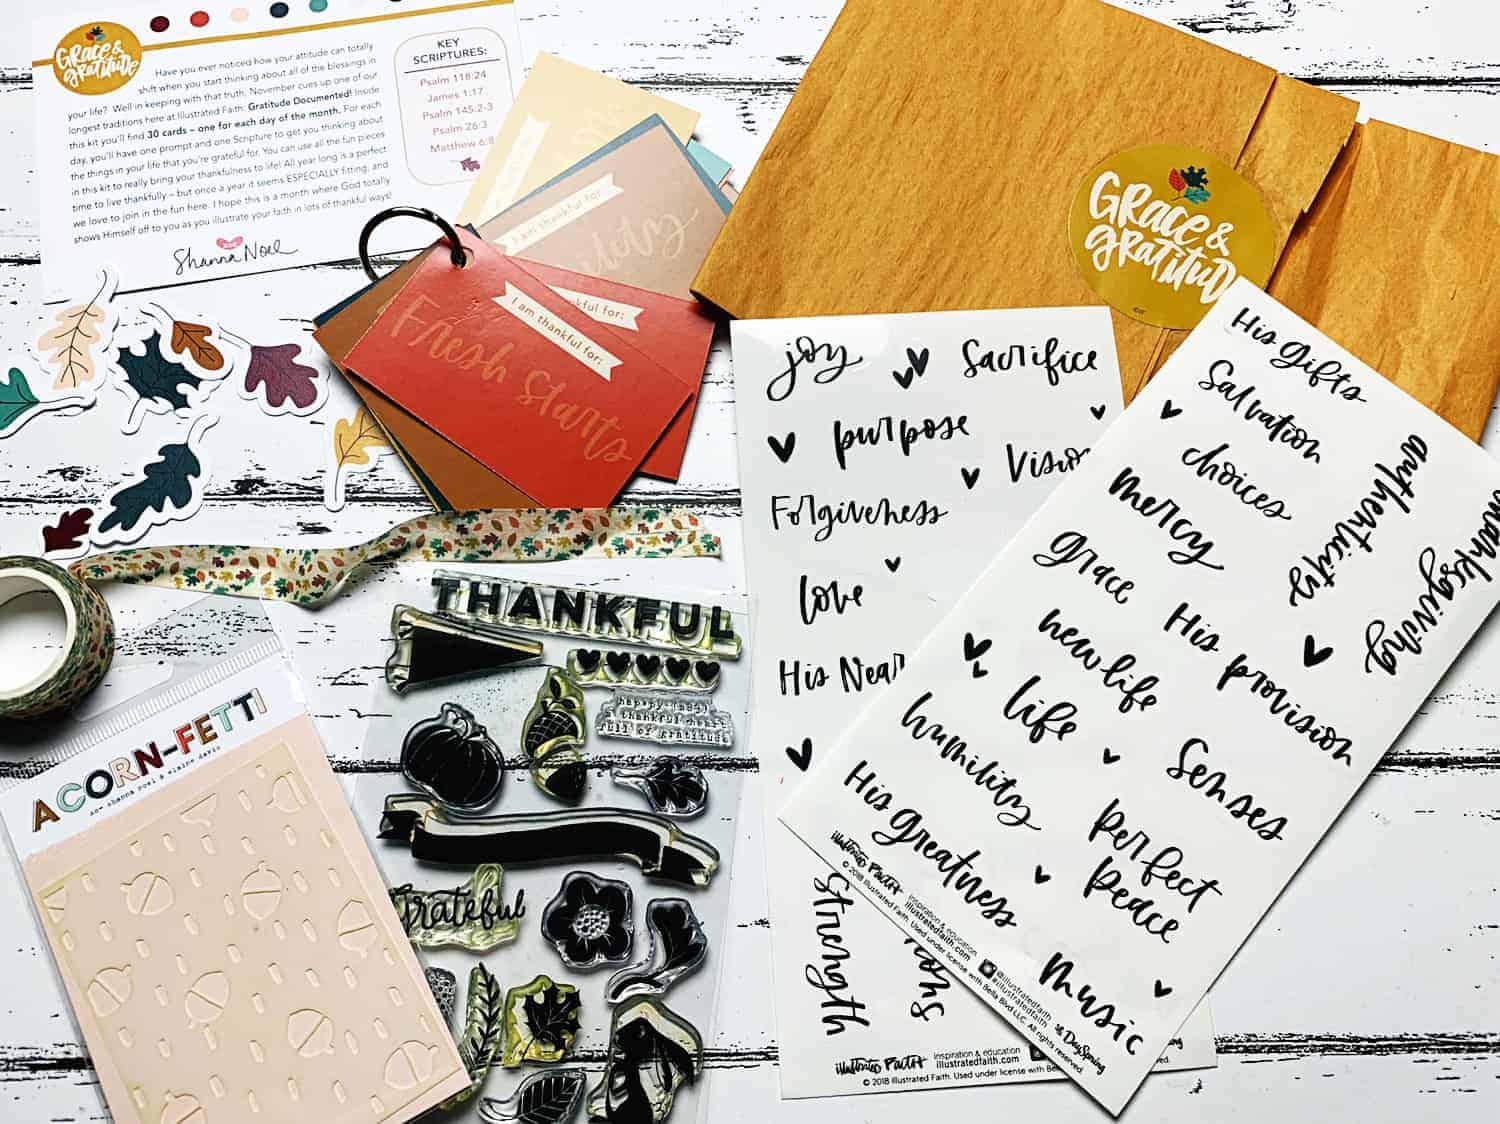 Grace &
gratitude
Have you ever noticed how your attitude can totally
shift when you start thinking about all of the blessings in
your life? Well in keeping with that truth, November cues up one of our
longest traditions here at Illustrated Faith: Gratitude Documented! Inside
this kit you'll find 30 cards – one for each day of the month. For each
day, you'll have one prompt and one Scripture to get you thinking about
the things in your life that you're grateful for. You can use all the fun pieces
in this kit to really bring your thankfulness to life! All year long is a perfect
time to live thankfully – but once a year it seems ESPECIALLY fitting, and
we love to join in the fun here. I hope this is a month where God totally
shows Himself off to you as you illustrate your faith in lots of thankful ways!
Shanna Noel
KEY
SCRIPTURES:
Psalm 118:24
James 1:17
Psalm 145:2-3
Psalm 26:3
Matthew 6:8
I am thankful for:
kful for:
I am thankful for:
Fresh Starts
Grace &
gratitud
joy
Sacrifice
purpose
Forgiveness
love
His Near
Strength
illustrated FAITH
inspiration & education
illustratedfaith.com
© 2018 Illustrated Faith. Used under license with
His gifts
Salvation
choices
authenticity
mercy
grace
His provision
new life
life
humility
Senses
His greatness
perfect
peace
music
illustrated FAITH
inspiration & education
illustratedfaith.com
@illustratedfaith
#illustratedfaith
DaySpring
© 2018 Illustrated Faith. Used under license with Bella Blvd LLC. All rights reserved.
THANKFUL
happy
a thankful heart
full of gratitude
grateful
ACORN-FETTI
shanna noel & elaine davis